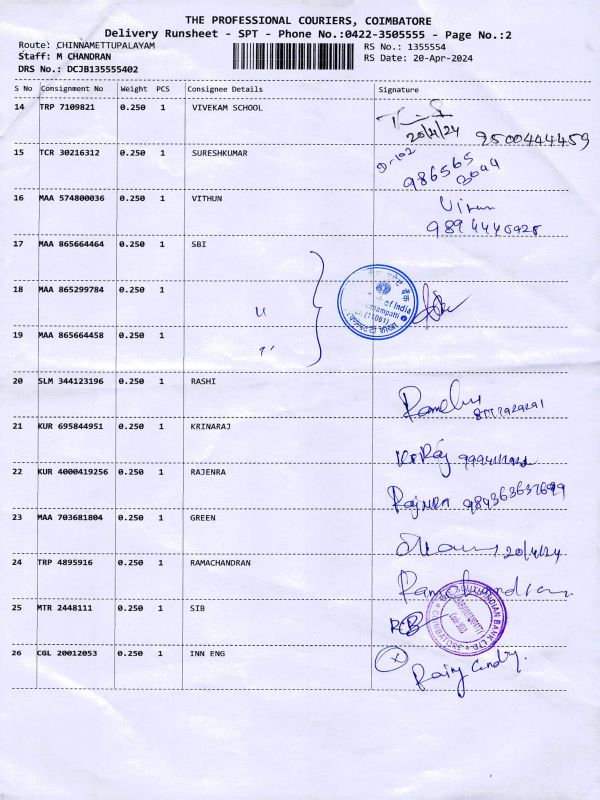 THE PROFESSIONAL COURIERS, COIMBATORE
Delivery Runsheet - SPT - Phone No.:0422-3505555 - Page No.:2
Route: CHINNAMETTUPALAYAM RS No.: 1355554
Staff: M CHANDRAN RS Date: 20-Apr-2024
DRS No.: DCJB135555402
S No Consignment No Weight PCS Consignee Details Signature
14 TRP 7109821 0.250 1 VIVEKAM SCHOOL
20/4/24 9500444459
15 TCR 30216312 0.250 1 SURESHKUMAR
986565
16 MAA 574800036 0.250 1 VITHUN
17 MAA 865664464 0.250 1 SBI
18 MAA 865299784 0.250 1 "
of India
19 MAA 865664458 0.250 1 "
20 SLM 344123196 0.250 1 RASHI
21 KUR 695844951 0.250 1 KRINARAJ
22 KUR 4000419256 0.250 1 RAJENRA
23 MAA 703681804 0.250 1 GREEN
20/4/24
24 TRP 4895916 0.250 1 RAMACHANDRAN
Ramachandran
25 MTR 2448111 0.250 1 SIB
INDIAN BANK LTD
COIMBATORE
26 CGL 20012053 0.250 1 INN ENG